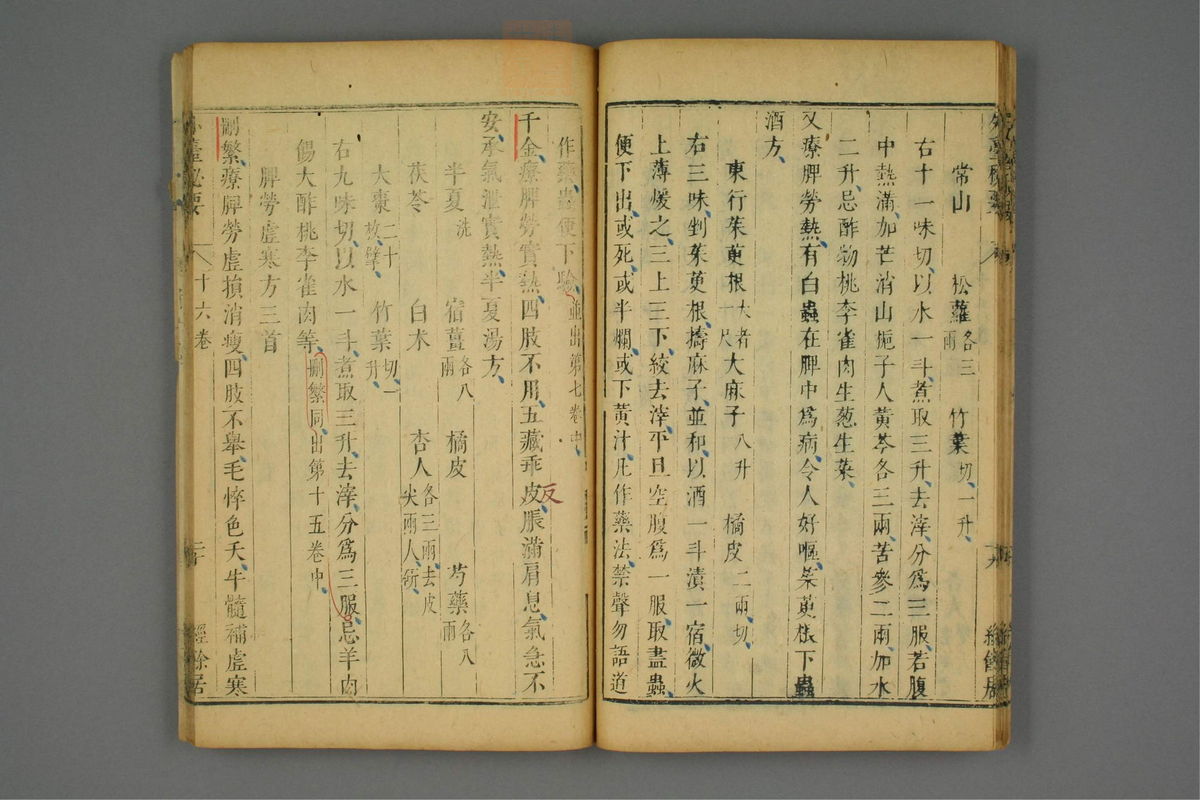 常山　松蘿各三兩　竹葉切一升
右十一味切以水一斗煮取三升去滓分爲三服若腹
中熱滿加芒消山梔子人黃芩各三兩苦參二兩加水
二升忌酢物桃李雀肉生葱生菜
又療脾勞熱有白蟲在脾中爲病令人好嘔茱萸根下蟲
酒方
東行茱萸根大者一尺　大麻子八升　橘皮二兩切
右三味剉茱萸根擣麻子並和以酒一斗漬一宿微火
上薄煖之三上三下絞去滓平旦空腹爲一服取盡蟲
便下出或死或半爛或下黃汁凡作藥法禁聲勿語道
作藥蟲便下驗並出第七卷中
千金療脾勞實熱四肢不用五藏乖反脹滿肩息氣急不
安承氣泄實熱半夏湯方
半夏洗　宿薑各八兩　橘皮　芍藥各八兩
茯苓　白朮　杏人各三兩去皮尖兩人研
大棗二十枚擘　竹葉切一升
右九味切以水一斗煮取三升去滓分爲三服忌羊肉
餳大酢桃李雀肉等刪繁同出第十五卷中
脾勞虛寒方三首
刪繁療脾勞虛損消瘦四肢不舉毛悴色夭牛髓補虛寒
十六卷
二十
經餘居